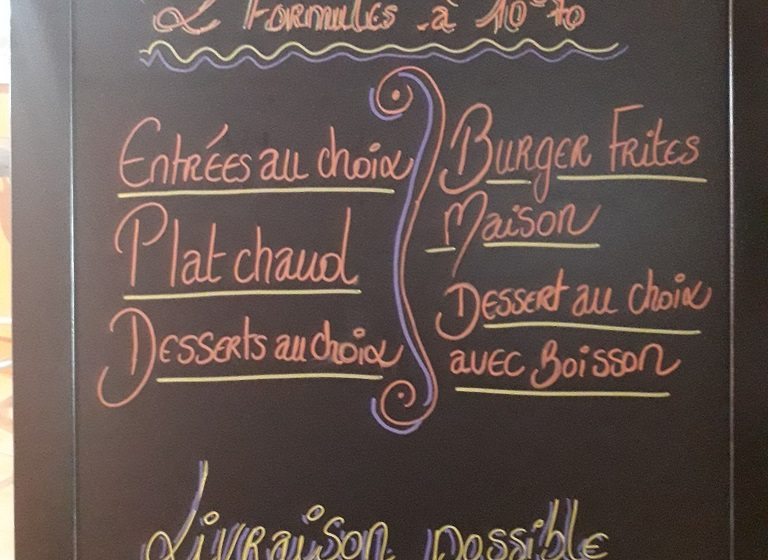 2 Formules à 10€70
Entrées au choix
Plat chaud
Desserts au choix
Burger Frites
Maison
Dessert au choix
avec Boisson
Livraison possible